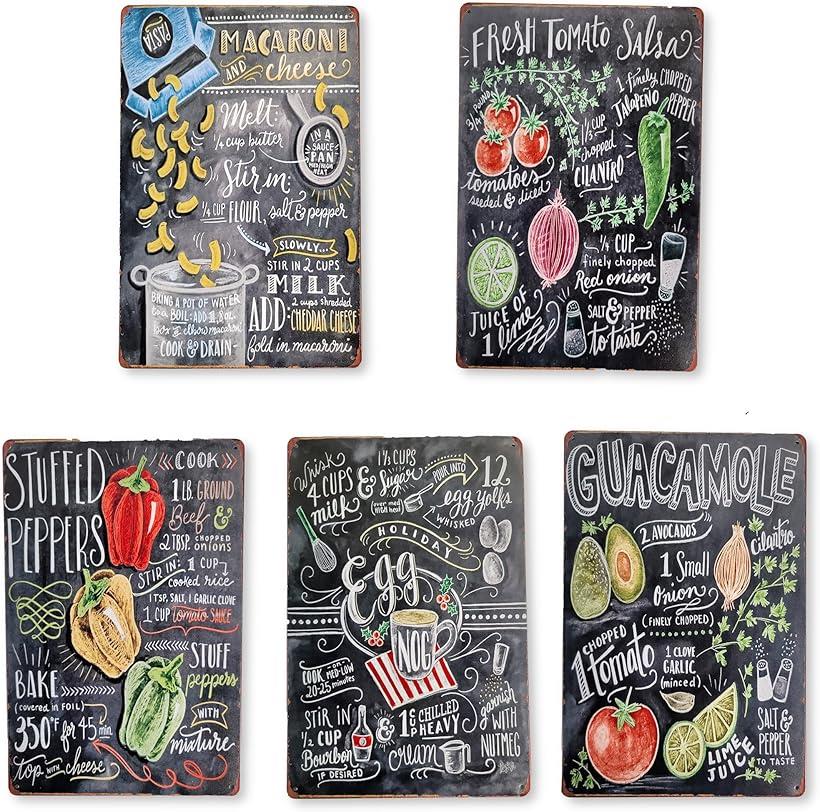 PASTA
MACARONI
AND cheese
Melt:
1/4 cup butter
IN A
SAUCE
PAN
HEAT
Stir in:
1/4 CUP FLOUR, salt & pepper
SLOWLY...
STIR IN 2 CUPS
MILK
2 cups shredded
ADD: CHEDDAR CHEESE
fold in macaroni
BRING A POT OF WATER
to a BOIL: ADD 1, 8 oz.
box of elbow macaroni
COOK & DRAIN
FRESH TOMATO SALSA
3/4 POUND
tomatoes
seeded & diced
1 finely CHOPPED
JALAPEÑO PEPPER
1/3 CUP
chopped
CILANTRO
1/4 CUP
finely chopped
Red onion
JUICE OF
1 lime
SALT & PEPPER
to taste
STUFFED
PEPPERS
COOK
1 LB. GROUND
Beef &
2 TBSP. CHOPPED onions
STIR IN: 1 CUP
cooked rice
1 TSP. SALT, 1 GARLIC CLOVE
1 CUP tomato SAUCE
STUFF
peppers
WITH
mixture
BAKE
(covered in FOIL)
350°F for 45 min.
top WITH cheese
Whisk
4 CUPS
milk
& 1 1/3 CUPS
Sugar
(over med
HIGH heat)
POUR INTO
12
egg yolks
WHISKED
HOLIDAY
Egg
NOG
COOK on MED-LOW
20-25 minutes
STIR IN
1/2 CUP
Bourbon
IF DESIRED
& 1 C CHILLED
HEAVY
cream
garnish
WITH
NUTMEG
GUACAMOLE
2 AVOCADOS
1 Small
Onion
(FINELY CHOPPED)
cilantro
CHOPPED
1 tomato
1 CLOVE
GARLIC
(minced)
LIME
JUICE
SALT &
PEPPER
TO TASTE